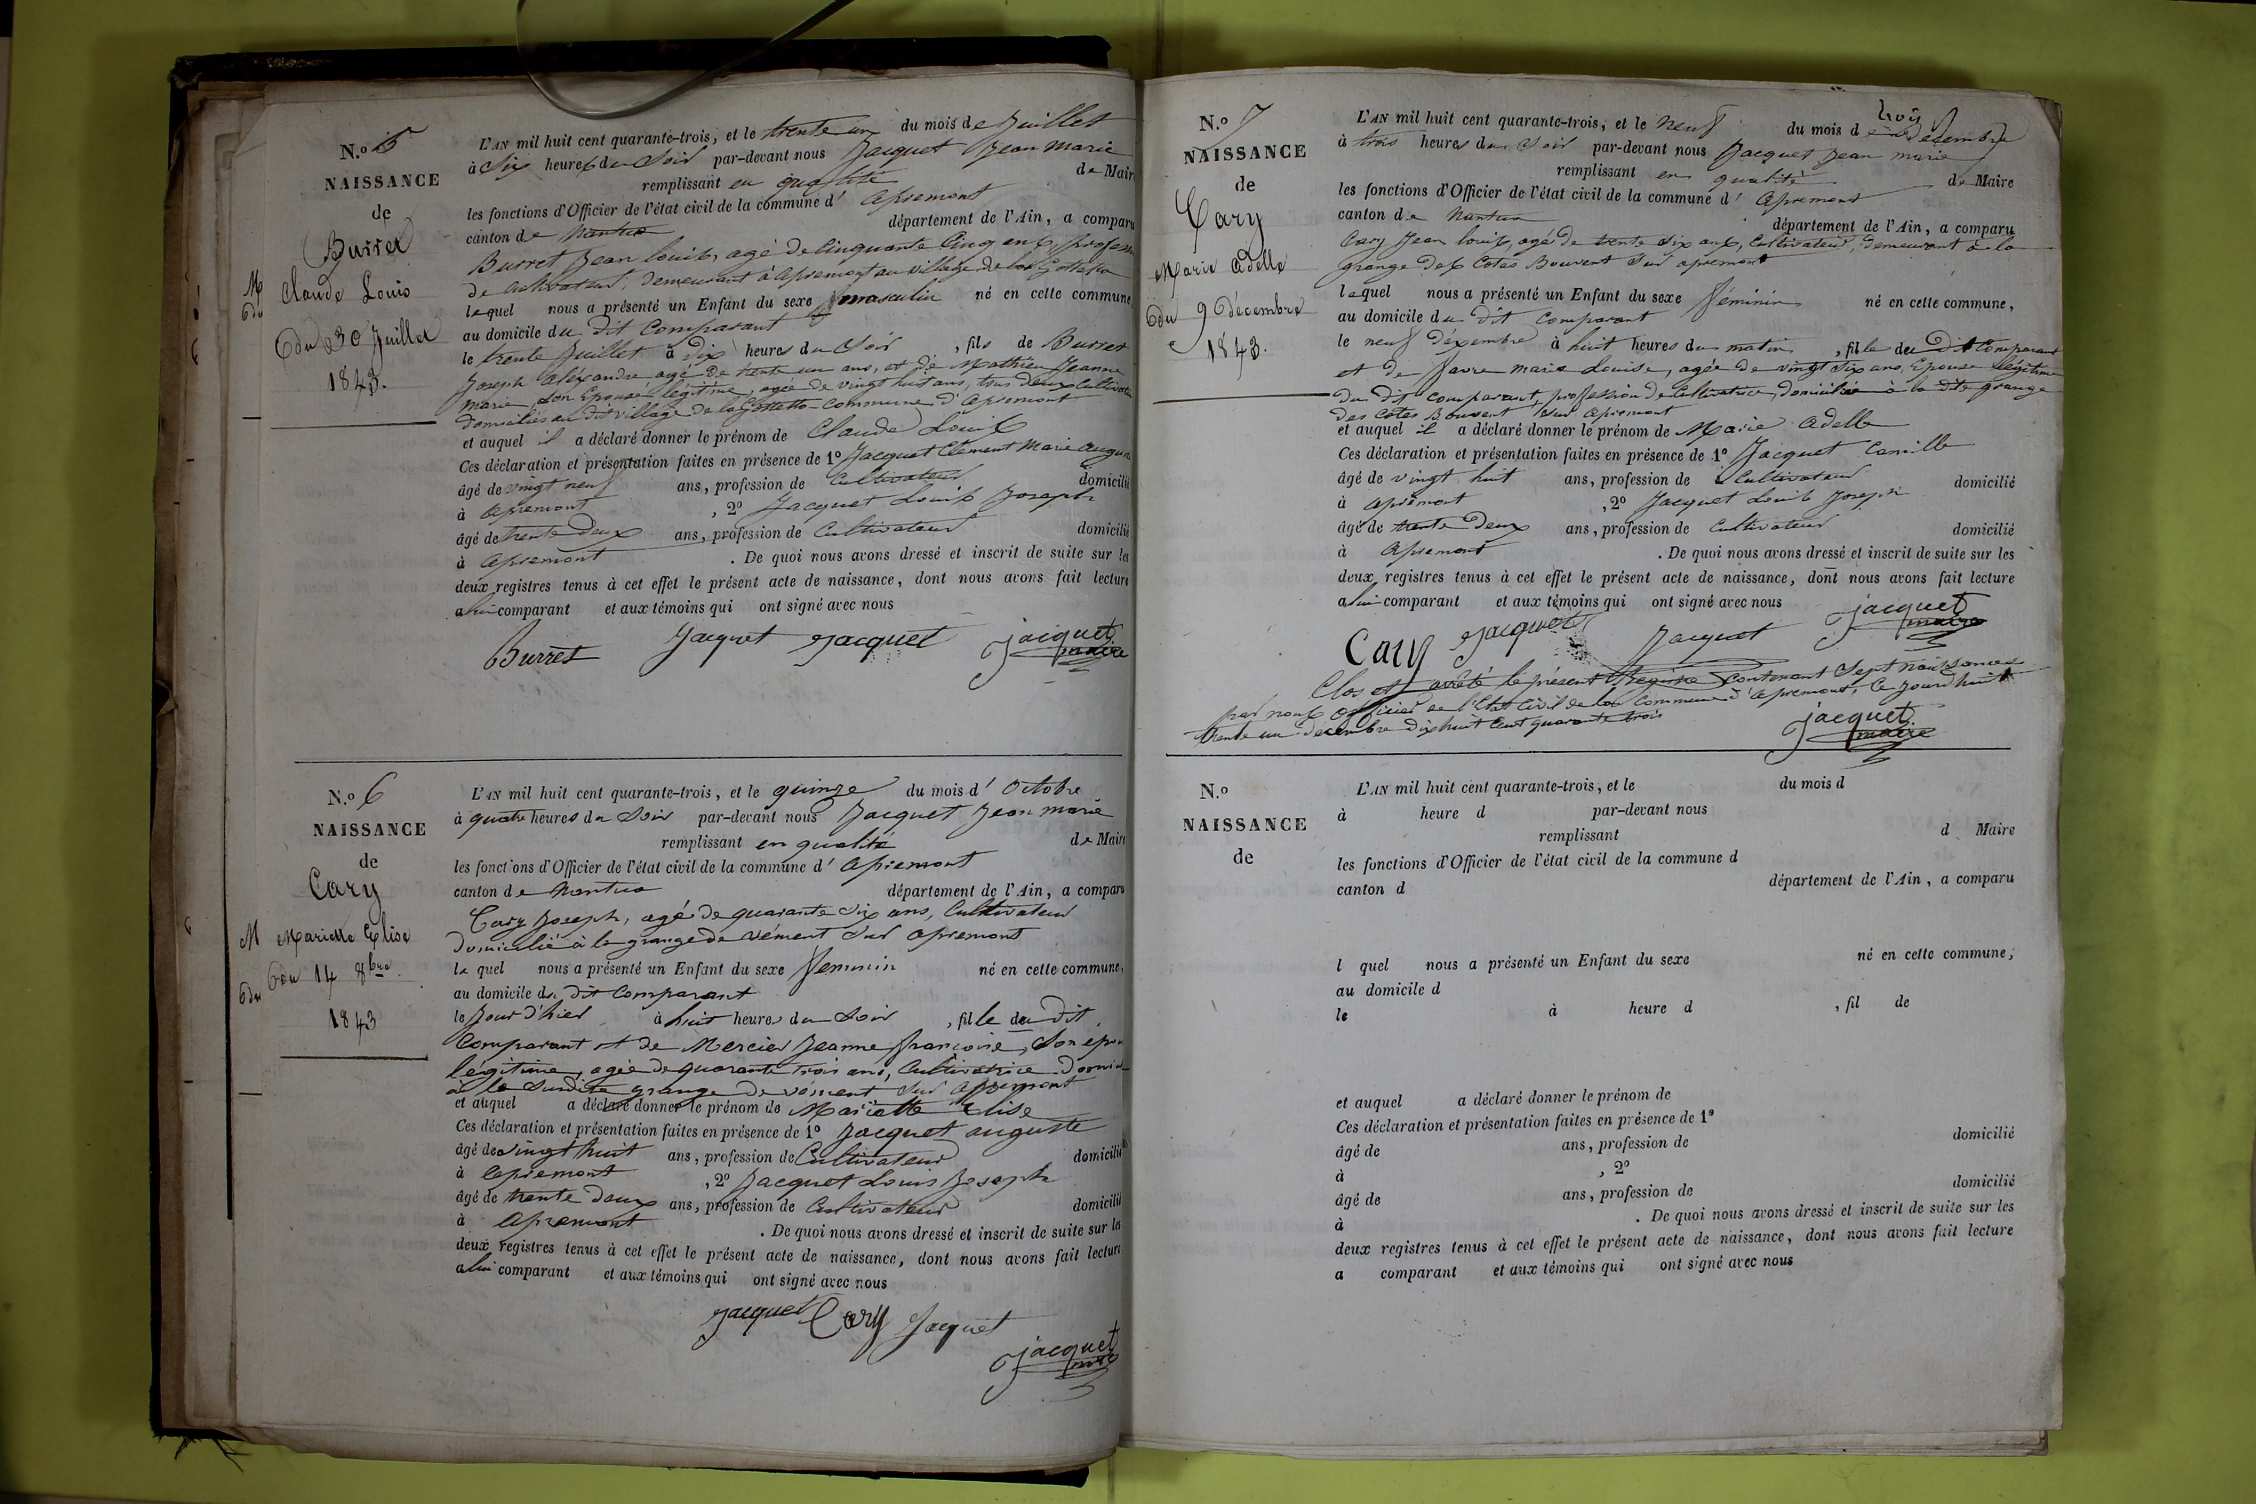 N.o 5
NAISSANCE
de
Burret
Claude Louis
du 30 Juillet
1843.
L'AN mil huit cent quarante-trois, et le trente un du mois de Juillet
à Six heures du Soir par-devant nous Jacquet Jean Marie
remplissant en qualité de Maire
les fonctions d'Officier de l'état civil de la commune d' apremont
canton de Nantua département de l'Ain, a comparu
Burret Jean louis, agé de Cinquante Cinq ans, profession
de cultivateur, demeurant à apremont au village de la
lequel nous a présenté un Enfant du sexe masculin né en cette commune
au domicile du dit Comparant
le trente Juillet à dix heures du Soir, fils de Burret
Joseph aléxandre agé de trente un ans, et de Mathieu Jeanne
Marie, Son Epouse légitime, agée de vingt huit ans, tous deux Cultivateurs
domiciliés au dit village de la commune d'apremont
et auquel il a déclaré donner le prénom de Claude Louis
Ces déclaration et présentation faites en présence de 1o Jacquet Clément Marie
âgé de vingt neuf ans, profession de Cultivateur domicilié
à apremont, 2o Jacquet Louis Joseph
âgé de trente deux ans, profession de Cultivateur domicilié
à apremont. De quoi nous avons dressé et inscrit de suite sur les
deux registres tenus à cet effet le présent acte de naissance, dont nous avons fait lecture
a lui comparant et aux témoins qui ont signé avec nous
Burret Jacquet Jacquet jacquet
maire
N.o 6
NAISSANCE
de
Cary
Mariette Elise
du 14 8bre
1843
L'AN mil huit cent quarante-trois, et le quinze du mois d' Octobre
à quatre heures du Soir par-devant nous Jacquet Jean marie
remplissant en qualité de Maire
les fonctions d'Officier de l'état civil de la commune d' apremont
canton de Nantua département de l'Ain, a comparu
Cary Joseph, agé de quarante Six ans, Cultivateur
domicilié à la grange de vément Sur apremont
lequel nous a présenté un Enfant du sexe feminin né en cette commune,
au domicile du dit Comparant
le Jour d'hier à huit heures du Soir, fille du dit
Comparant et de Mercier Jeanne françoise, Son
légitime, agée de quarante trois ans, Cultivatrice
à la Susdite grange de vément sur apremont
et auquel a déclaré donner le prénom de Mariette Elise
Ces déclaration et présentation faites en présence de 1o Jacquet auguste
âgé de vingt huit ans, profession de Cultivateur domicilié
à apremont, 2o Jacquet Louis Joseph
âgé de trente deux ans, profession de Cultivateur domicilié
à apremont. De quoi nous avons dressé et inscrit de suite sur les
deux registres tenus à cet effet le présent acte de naissance, dont nous avons fait lecture
a lui comparant et aux témoins qui ont signé avec nous
Jacquet Cary Jacquet
jacquet
maire
N.o 7
NAISSANCE
de
Cary
Marie Adelle
du 9 Décembre
1843.
L'AN mil huit cent quarante-trois, et le neuf du mois de décembre
à trois heures du Soir par-devant nous Jacquet Jean marie
remplissant en qualité de Maire
les fonctions d'Officier de l'état civil de la commune d' apremont
canton de Nantua département de l'Ain, a comparu
Cary Jean louis, agé de trente Six ans, Cultivateur, demeurant à la
grange des Cotes Bouvent Sur apremont
lequel nous a présenté un Enfant du sexe féminin né en cette commune,
au domicile du dit Comparant
le neuf décembre à huit heures du matin, fille du dit Comparant
et de favre marie Louise, agée de vingt Six ans, Epouse légitime
du dit comparant, profession de Cultivatrice, domiciliée à la dite grange
des Cotes Bouvent Sur apremont
et auquel il a déclaré donner le prénom de Marie Adelle
Ces déclaration et présentation faites en présence de 1o Jacquet Camille
âgé de vingt huit ans, profession de Cultivateur domicilié
à apremont, 2o Jacquet Louis Joseph
âgé de trente deux ans, profession de Cultivateur domicilié
à apremont. De quoi nous avons dressé et inscrit de suite sur les
deux registres tenus à cet effet le présent acte de naissance, dont nous avons fait lecture
a lui comparant et aux témoins qui ont signé avec nous
Cary Jacquet Jacquet jacquet
maire
Clos et arrêté le présent Registre contenant Sept naissances
par nous Officier de l'Etat Civil de la Commune d'apremont, Ce Jourd'huit
trente un décembre dix huit cent quarante trois
jacquet
maire
N.o
NAISSANCE
de
L'AN mil huit cent quarante-trois, et le du mois d
à heure d par-devant nous
remplissant d Maire
les fonctions d'Officier de l'état civil de la commune d
canton d département de l'Ain, a comparu
l quel nous a présenté un Enfant du sexe né en cette commune,
au domicile d
le à heure d , fil de
et auquel a déclaré donner le prénom de
Ces déclaration et présentation faites en présence de 1o
âgé de ans, profession de domicilié
à , 2o
âgé de ans, profession de domicilié
à . De quoi nous avons dressé et inscrit de suite sur les
deux registres tenus à cet effet le présent acte de naissance, dont nous avons fait lecture
a comparant et aux témoins qui ont signé avec nous